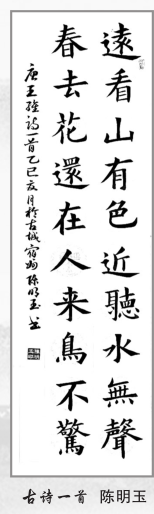 遠看山有色近聽水無聲
春去花還在人来鳥不驚
唐王維詩一首乙巳夏月於古城宿州陈明玉书
古诗一首 陈明玉